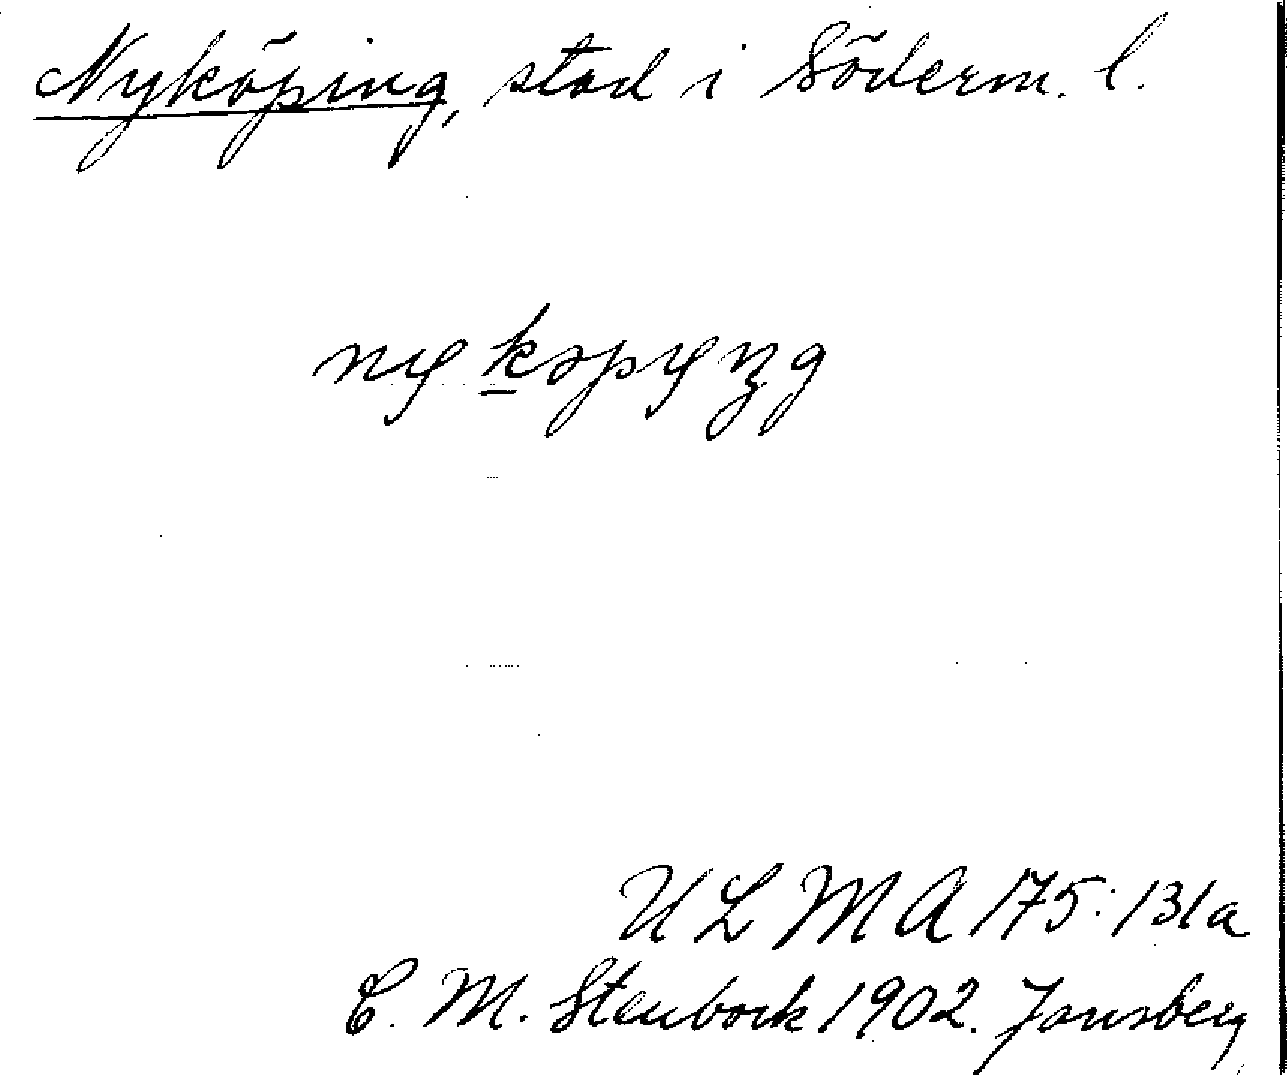 Nyköping, stad i Söderm. l.
ULMA 175:131a
C. M. Stenbock 1902. Jonsberg